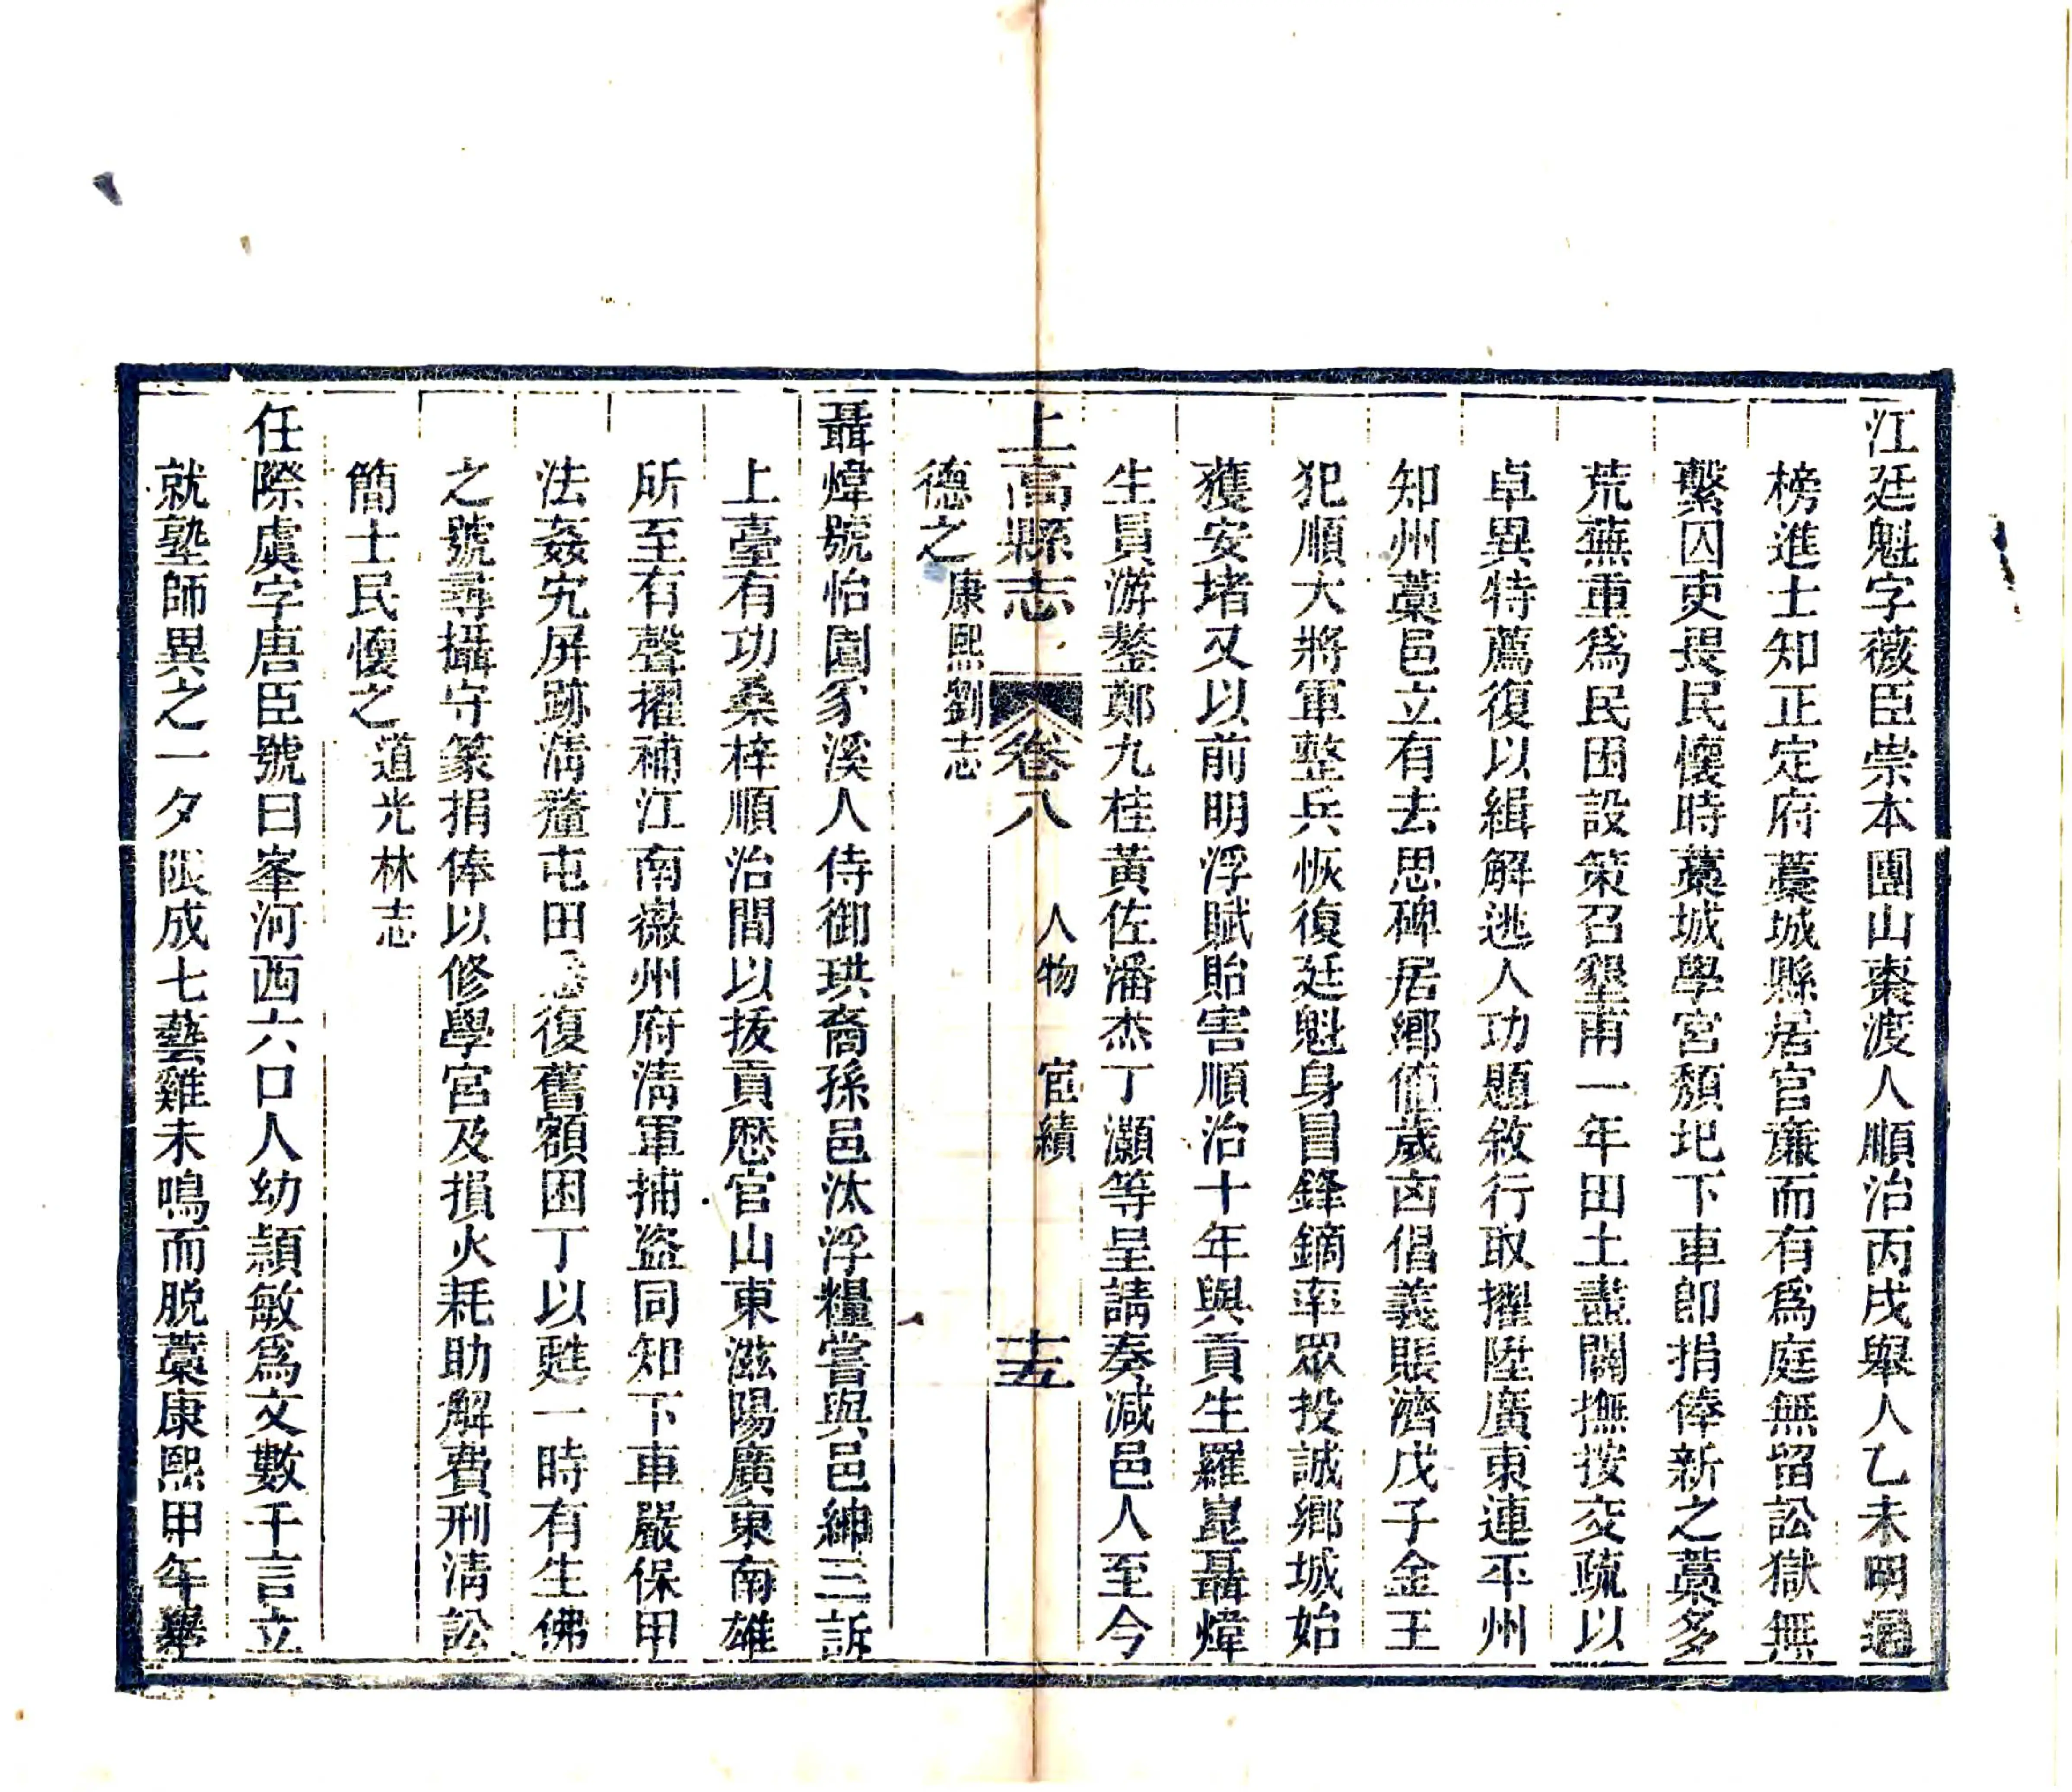 江廷魁字薇臣崇本團山棗渡人順治丙戌舉人乙未明通
榜進士知正定府藁城縣居官廉而有爲庭無留訟獄無
繫囚吏畏民懷時藁城學宮頽圮下車卽捐俸新之藁多
荒蕪重爲民困設策召墾甫一年田土盡闢撫按交疏以
卓異特薦復以緝解逃人功題敘行取擢陞廣東連平州
知州藁邑立有去思碑居鄉値歲凶倡義賑濟戊子金王
犯順大將軍整兵恢復廷魁身冒鋒鏑率眾投誠鄉城始
獲安堵又以前明浮賦貽害順治十年與貢生羅崑聶煒
生員游鏊鄭九桂黃佐潘杰丁灝等呈請奏減邑人至今
德之康熙劉志
上高縣志 卷八 人物 宦績 十五
聶煒號怡園豕溪人侍御珙裔孫邑汰浮糧嘗與邑紳三訴
上臺有功桑梓順治間以拔貢歷官山東滋陽廣東南雄
所至有聲擢補江南徽州府淸軍捕盜同知下車嚴保甲
法姦宄屏跡淸釐屯田復舊額困丁以甦一時有生佛
之號尋攝守篆捐俸以修學宮及損火耗助解費刑淸訟
簡士民懷之道光林志
任際虞字唐臣號曰峯河西六口人幼穎敏爲文數千言立
就塾師異之一夕限成七藝雞未鳴而脫藁康熙甲午舉